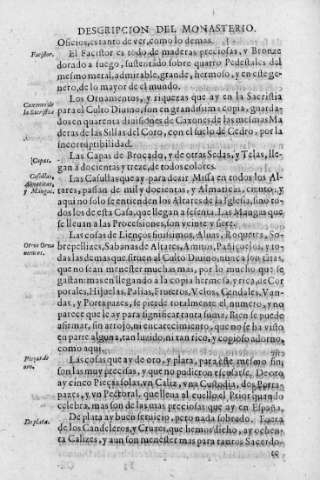 DESCRIPCION DEL MONASTERIO
Oficios, es tanto de ver, como lo demas.
Facistor.
El Facistor es todo de maderas preciosas, y Bronze
dorado a fuego, sustentado sobre quatro Pedestales del
mesmo metal, admirable, grande, hermoso, y en este ge-
nero, de lo mayor de el mundo.
Caxones de
la Sacristia
Los Ornamentos, y riquezas que ay en la Sacristia
para el Culto Diuino, son en grandissima copia, guarda-
dos en quarenta diuisiones de Caxones de las mesmas Ma
deras de las Sillas del Coro, con el suelo de Cedro, por la
incorruptibilidad.
Capas.
Las Capas de Brocado, y de otras Sedas, y Telas, lle-
gan a docientas y treze, de todos colores.
Casullas,
Almaticas,
y Mangas.
Las Casullas que ay para dezir Missa en todos los Al-
tares, passan de mil y docientas, y Almaticas, ciento; y
aqui no solo se entienden los Altares de la Iglesia, sino to-
dos los de esta Casa, que llegan a sesenta. Las Mangas que
se lleuan a las Processiones, son veinte y siete.
Otros Orna
mentos.
Las cosas de Lienços finissimos, Aluas, Roquetes, So-
brepellizes, Sabanas de Altares, Amitos, Pañiçuelos, y to-
das las demas que siruen al Culto Diuino, nunca son tantas,
que no sean menester muchas mas, por lo mucho que se
gastan: mas en llegando a la copia hermosa, y rica, de Cor
porales, Hijuelas, Palias, Fruteros, Velos, Cendales, Van-
das, y Portapazes, se pierde totalmente el numero, y no
parece que le ay para significar tanta suma. Bien se puede
afirmar, sin arrojo, ni encarecimiento, que no se ha visto
en parte alguna, tan luzido, ni tan rico, y copioso adorno,
como aqui.
Pieças de
oro.
Las cosas que ay de oro, y plata, para este mesmo fin,
son las muy precisas, y que no pudieron escusarse. De oro
ay cinco Pieças solas, vn Caliz, vna Custodia, dos Porta-
pazes, y vn Pectoral, que lleua al cuello el Prior quando
celebra, mas son de las mas preciosas que ay en España.
De plata.
De plata ay buen seruicio, pero nada sobrado. Fuera
de los Candeleros, y Cruzes, que hemos dicho, ay ochen-
ta Calizes, y aun son menester mas para tantos Sacerdo-